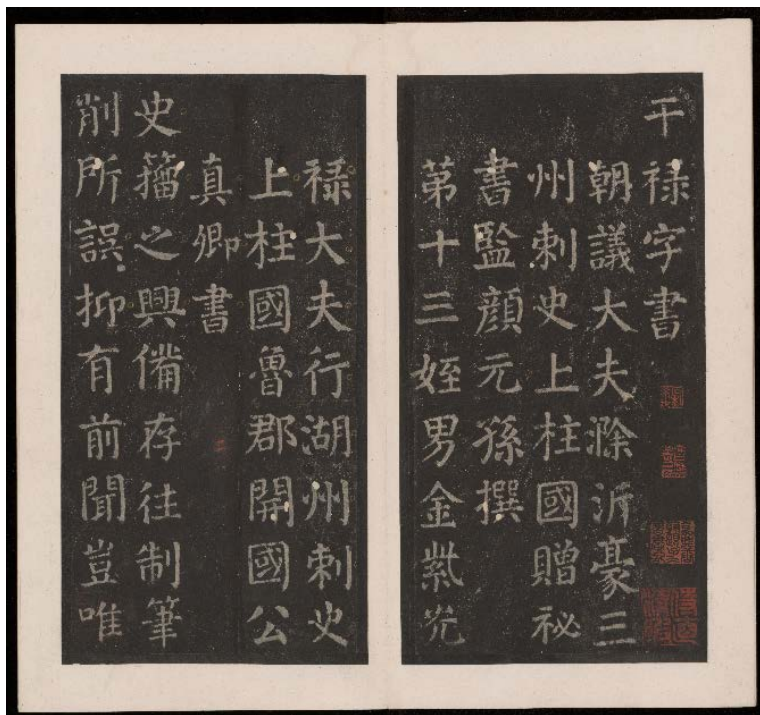 干禄字書
朝議大夫滁沂豪三
州刺史上柱國贈祕
書監顔元孫撰
苐十三姪男金紫光
禄大夫行湖州刺史
上柱國魯郡開國公
真卿書
史籀之興備存往制筆
削所誤抑有前聞豈唯